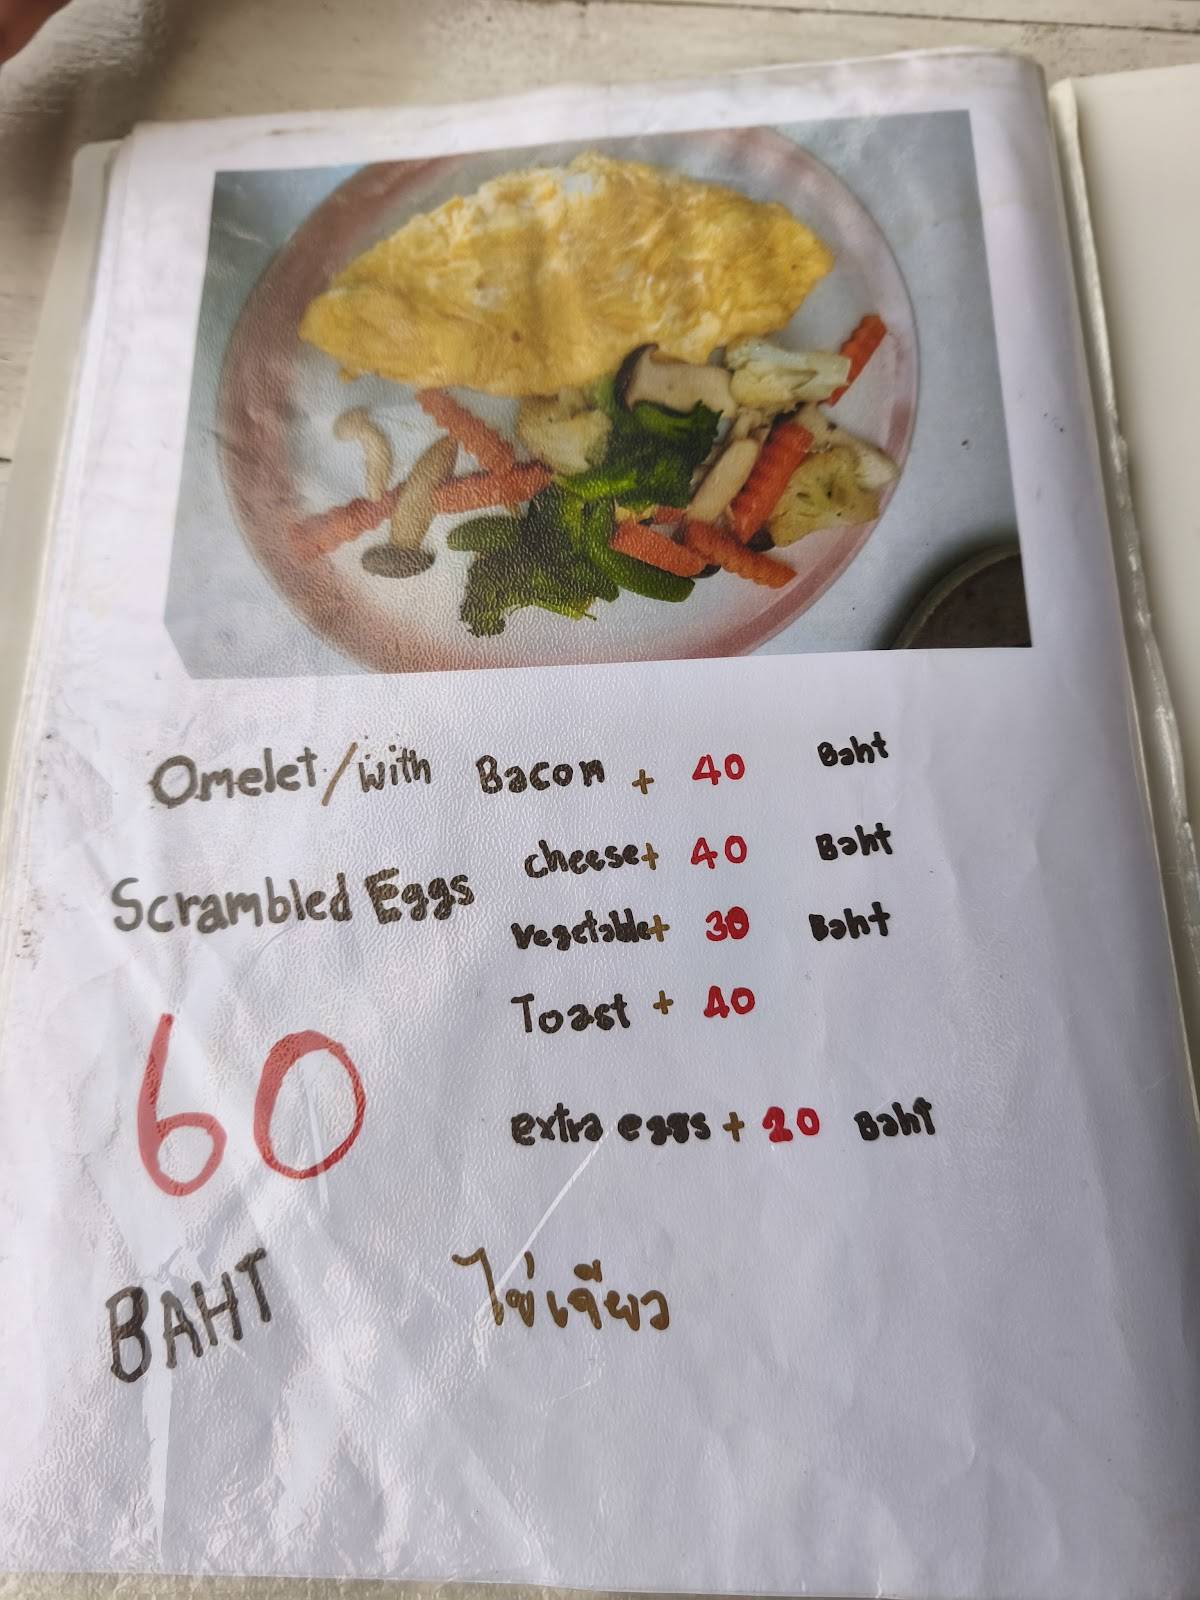 Omelet/with Bacon + 40 Baht
cheese+ 40 Baht
Scrambled Eggs
vegetable+ 30 Baht
Toast + 40
60
extra eggs + 20 Baht
BAHT
ไข่เจียว